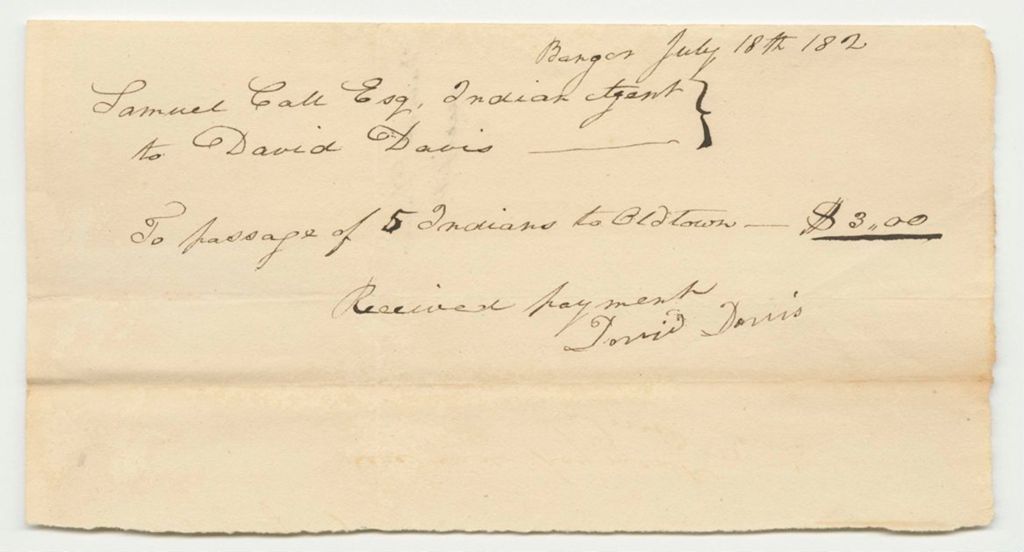 Bangor July 18th 182
Samuel Call Esq, Indian Agent
to David Davis
To passage of 5 Indians to Oldtown — $3,,00
Received payment
David Davis